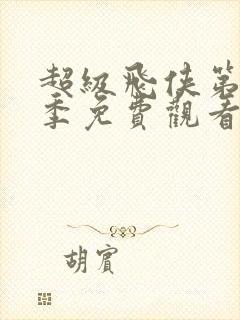 超級飛俠第
季免費觀看
胡賓